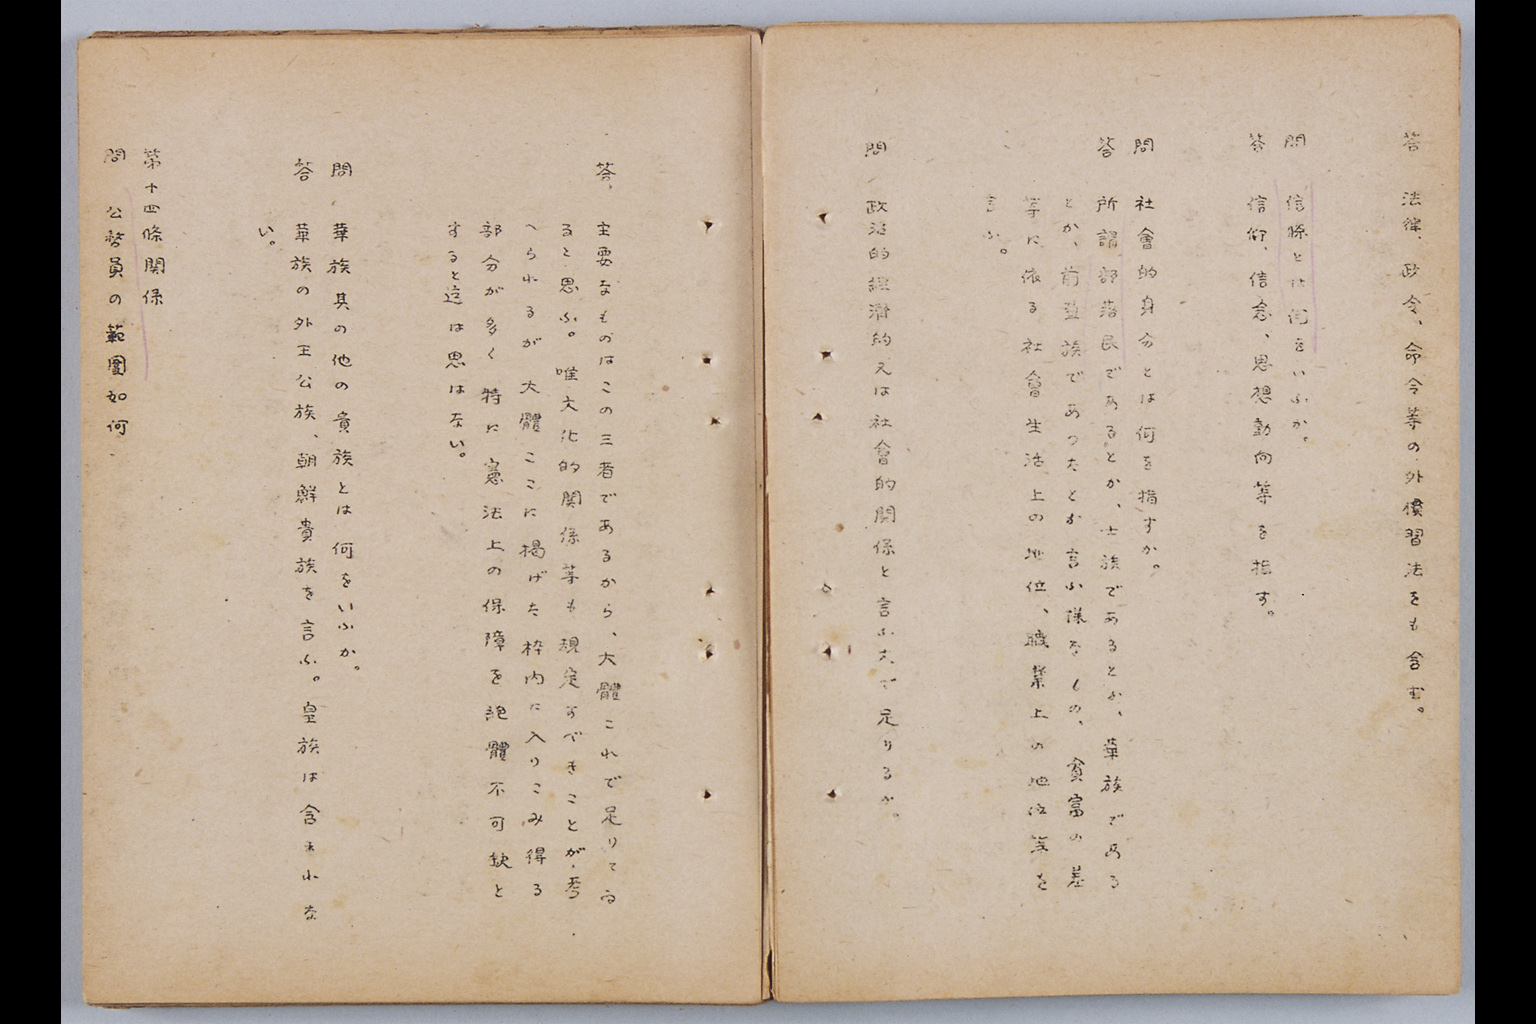 答 法律、政令、命令等の外慣習法をも含む。
問 信條とは何をいふか。
答 信仰、信念、思想動向等を指す。
問 社會的身分とは何を指すか。
答 所謂部落民であるとか、士族であるとか、華族である
とか、前華族であつたとか言ふ様なもの、貧富の差
等に依る社會生活上の地位、職業上の地位等を
言ふ。
問 政治的經濟的又は社會的關係と言ふ丈で足りるか。
答、主要なものはこの三者であるから、大體これで足りてゐ
ると思ふ。唯文化的關係等も規定すべきことが考
へられるが大體ここに掲げた枠内に入りこみ得る
部分が多く特に憲法上の保障を絶體不可欠と
すると迄は思はない。
問 華族其の他の貴族とは何をいふか。
答 華族の外王公族、朝鮮貴族を言ふ。皇族は含まれな
い。
第十四條關係
問 公務員の範圍如何